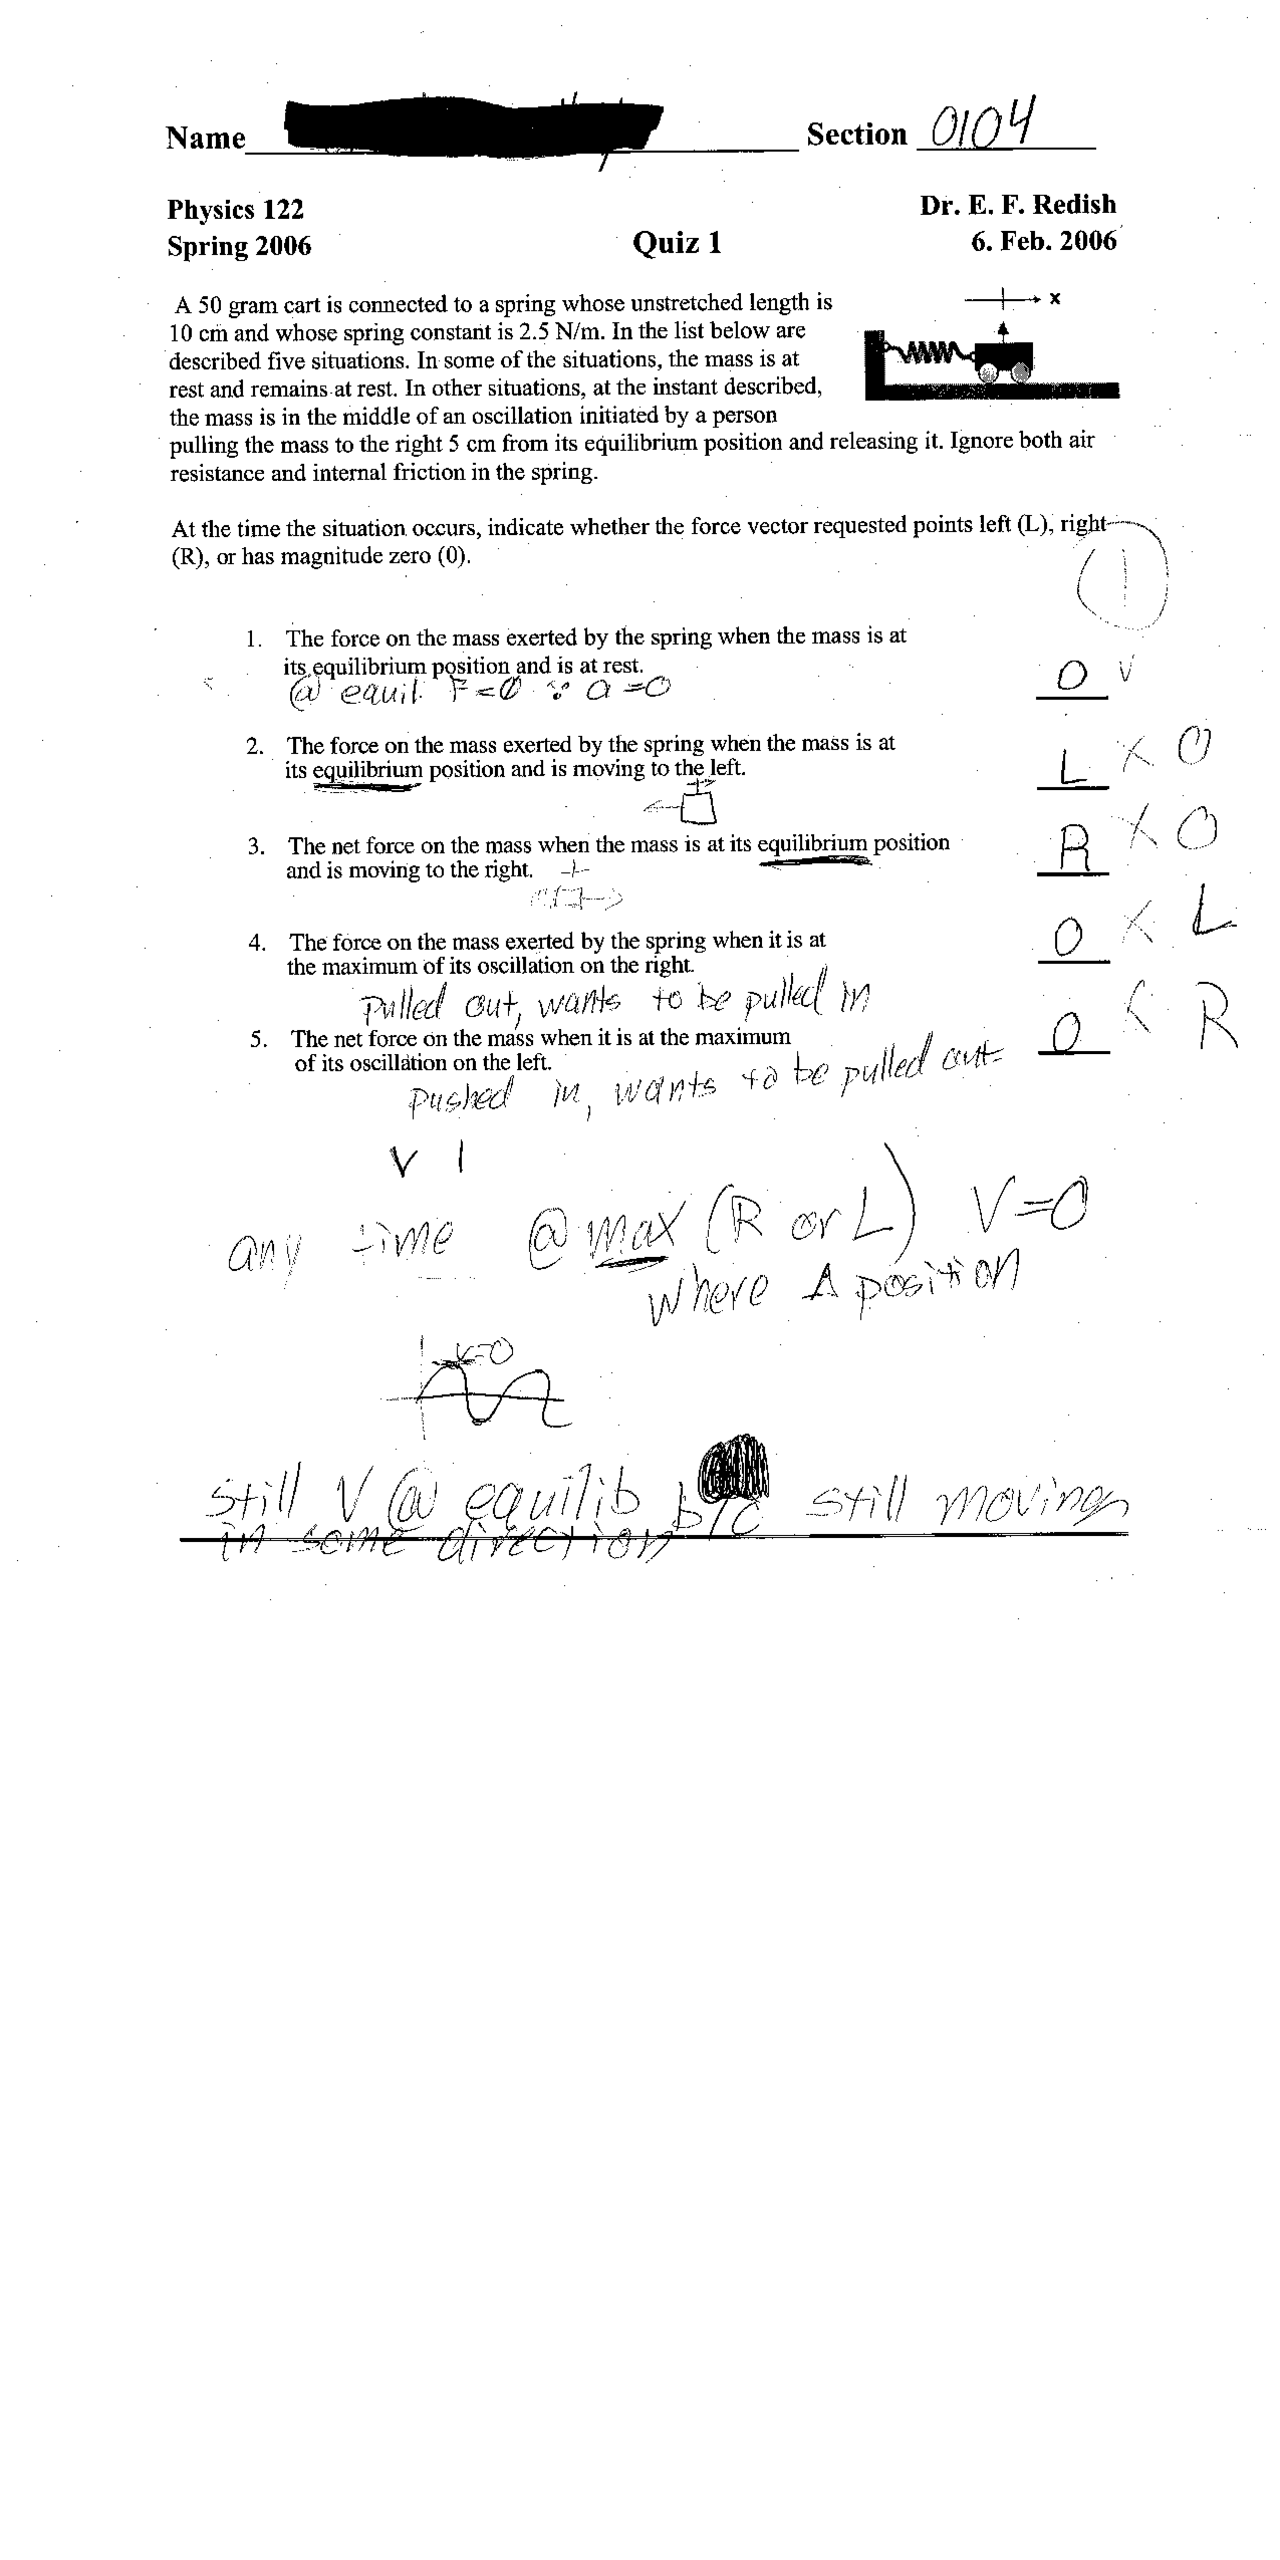 Name Section 0104
Physics 122 Dr. E. F. Redish
Spring 2006 Quiz 1 6. Feb. 2006
x
A 50 gram cart is connected to a spring whose unstretched length is
10 cm and whose spring constant is 2.5 N/m. In the list below are
described five situations. In some of the situations, the mass is at
rest and remains at rest. In other situations, at the instant described,
the mass is in the middle of an oscillation initiated by a person
pulling the mass to the right 5 cm from its equilibrium position and releasing it. Ignore both air
resistance and internal friction in the spring.
At the time the situation occurs, indicate whether the force vector requested points left (L), right
(R), or has magnitude zero (0).
1
1. The force on the mass exerted by the spring when the mass is at
its equilibrium position and is at rest. 0 ✓
@ equil. F=0 ∵ a=0
2. The force on the mass exerted by the spring when the mass is at
its equilibrium position and is moving to the left. L X 0
3. The net force on the mass when the mass is at its equilibrium position
and is moving to the right. R X 0
4. The force on the mass exerted by the spring when it is at
the maximum of its oscillation on the right. 0 X L
Pulled out, wants to be pulled in
5. The net force on the mass when it is at the maximum
of its oscillation on the left. 0 X R
Pushed in, wants to be pulled out
V
any time @ max (R or L) V=0
where A position
V=0
still V @ equilib b/c still moving
in some direction